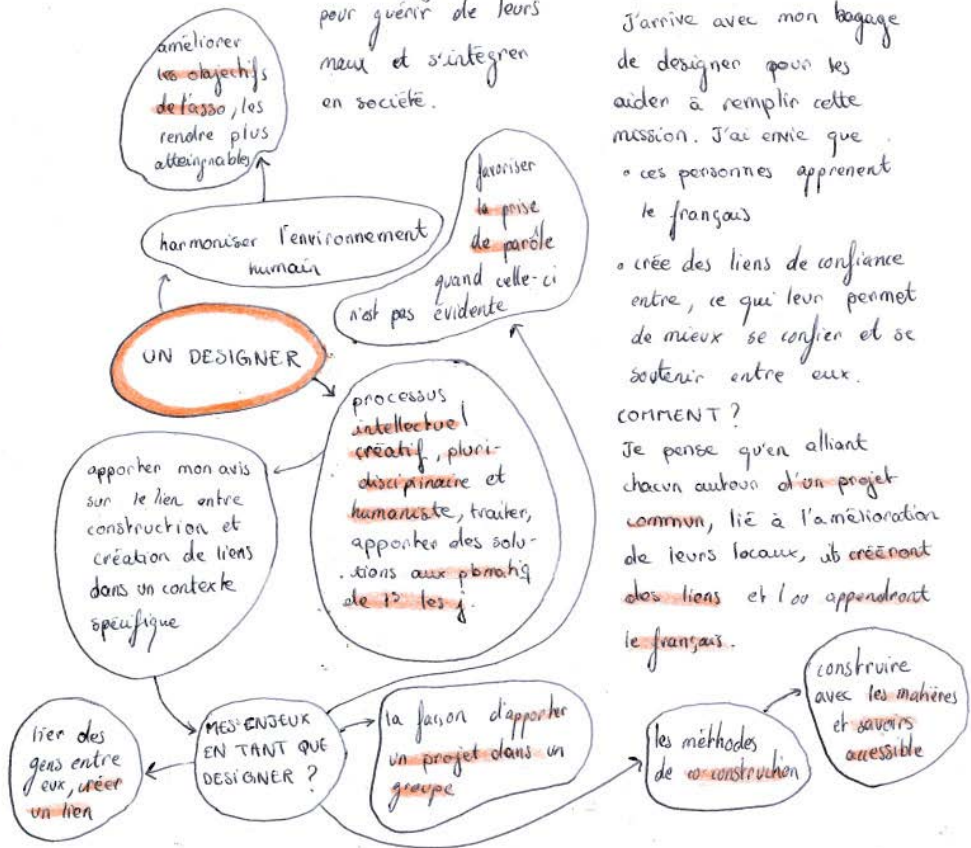 pour guérir de leurs
maux et s'intégrer
en société.
améliorer
les objectifs
de l'asso, les
rendre plus
atteingnables
harmoniser l'environnement
humain
favoriser
la prise
de parôle
quand celle-ci
n'est pas évidente
UN DESIGNER
processus
intellectuel
créatif, pluri-
disciprinaire et
humaniste, traiter,
apporter des solu-
tions aux pbmatiq
de ts les j.
apporter mon avis
sur le lien entre
construction et
création de liens
dans un contexte
spécifique
MES ENJEUX
EN TANT QUE
DESIGNER ?
lier des
gens entre
eux, créer
un lien
la façon d'apporter
un projet dans un
groupe
les méthodes
de co-construction
construire
avec les matières
et savoirs
accessible
J'arrive avec mon bagage
de designer pour les
aider à remplir cette
mission. J'ai envie que
• ces personnes apprenent
le français
• crée des liens de confiance
entre, ce qui leur permet
de mieux se confier et se
soutenir entre eux.
COMMENT ?
Je pense qu'en alliant
chacun autour d'un projet
commun, lié à l'amélioration
de leurs locaux, ils créeront
des liens et/ou appendront
le français.